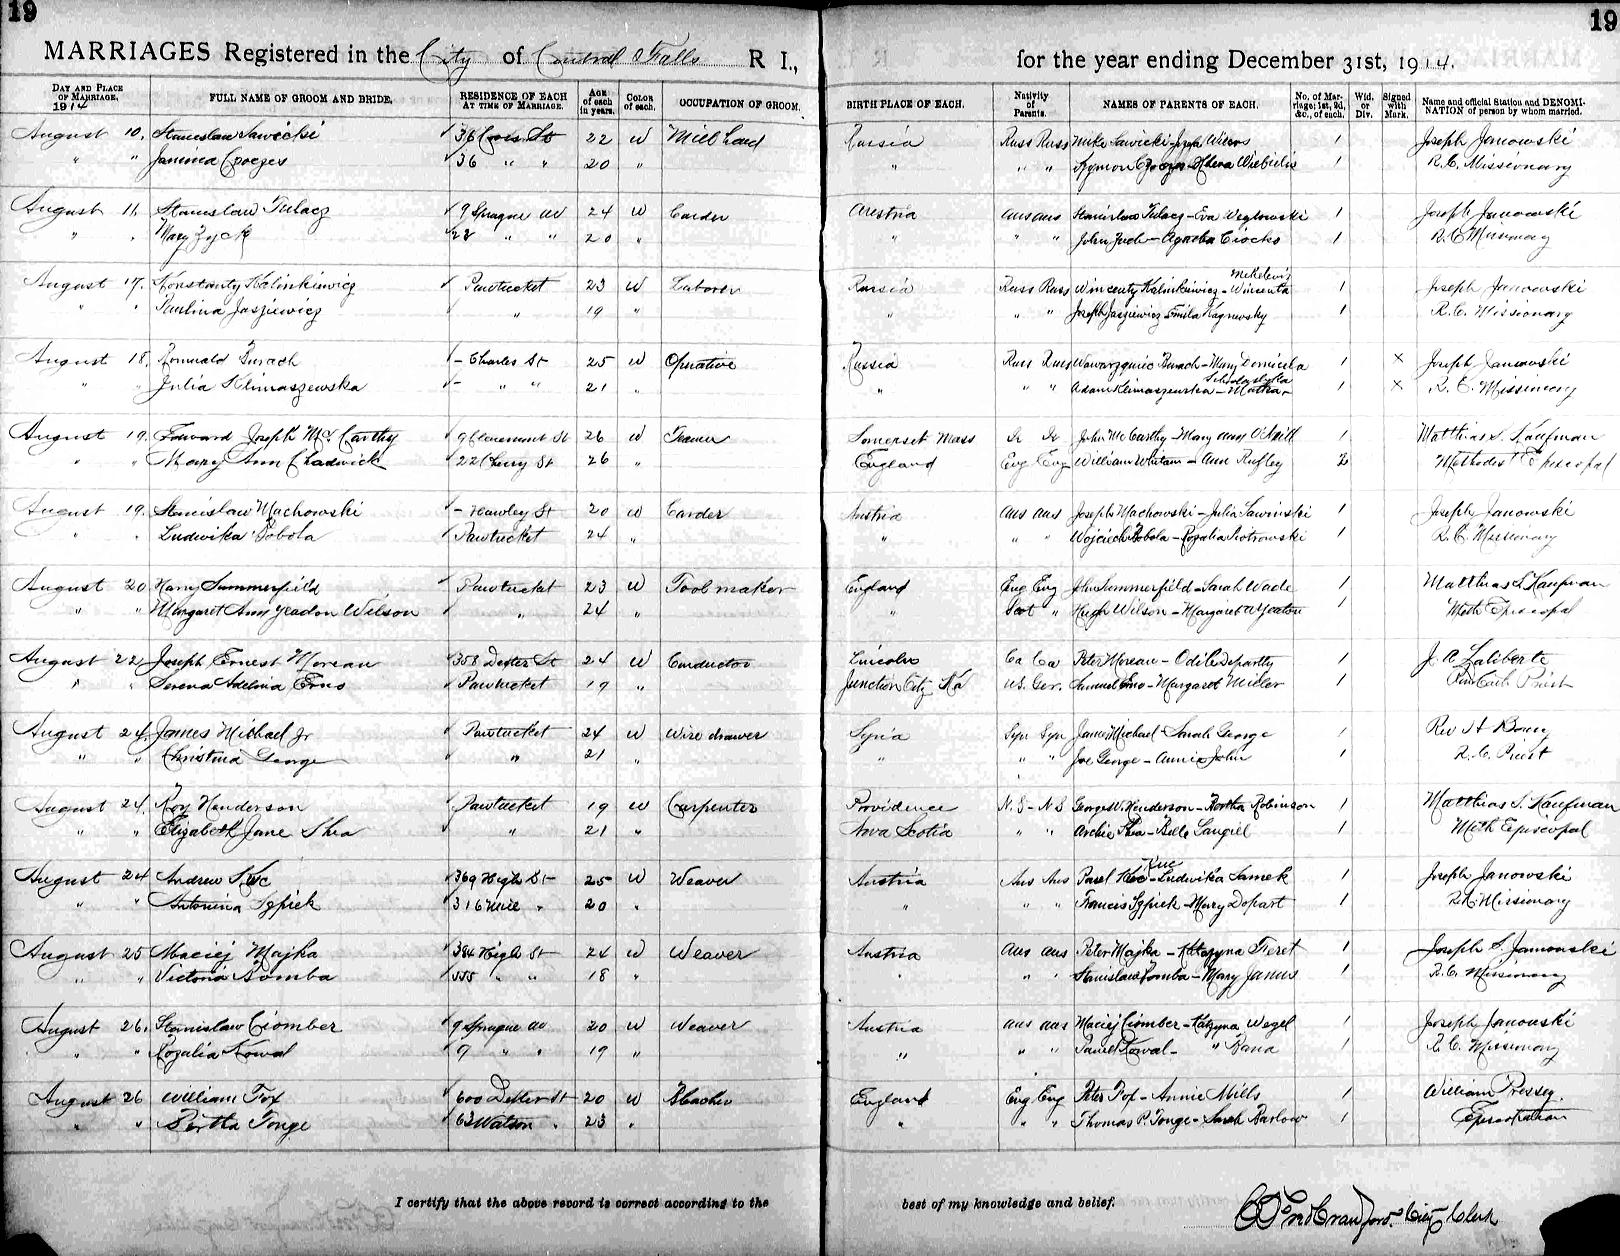 19
19
MARRIAGES Registered in the City of Central Falls R I.,
for the year ending December 31st, 1914.
DAY AND PLACE OF MARRIAGE. 1914
FULL NAME OF GROOM AND BRIDE.
RESIDENCE OF EACH AT TIME OF MARRIAGE.
AGE of each in years.
COLOR of each.
OCCUPATION OF GROOM.
BIRTH PLACE OF EACH.
Nativity of Parents.
NAMES OF PARENTS OF EACH.
No. of Marriage; 1st, 2d, &c., of each.
Wid. or Div.
Signed with Mark.
Name and official Station and DENOMINATION of person by whom married.
August 10, Stanislaw Sawicki 36 St 22 W Mill hand Russia Russ Russ Mike Sawicki 1 Joseph Janowski
" " 36 " " 20 " " " " 1 R.C. Missionary
August 11, Stanislaw Tulacz 9 Sprague av 24 W Carder Austria aus aus Stanislaw Tulacz - Eva 1 Joseph Janowski
" " Mary Zyck 28 " " 20 " " " " 1 R.C. Missionary
August 17. Konstanty Kalinkiewicz Pawtucket 23 W Laborer Russia Russ Russ Wincenty Kalinkiewicz - Wincenta 1 Joseph Janowski
" " Paulina Jasziewicz " 19 " " " " Joseph Jasziewicz - Emila 1 R.C. Missionary
August 18. Romuald Burach - Charles St 25 W Operative Russia Russ Russ Burach - Mary 1 X Joseph Janowski
" " Julia Klimaszewska - " " 21 " " " " Adam Klimaszewska - 1 X R.C. Missionary
August 19. Edward Joseph Mc Carthy 9 Claremont St 26 W Teamer Somerset Mass Ir Ir John McCarthy - Mary Ann O'Neill 1 Matthias S. Kaufman
" " Mary Ann Chadwick 22 Cherry St 26 " England Eng Eng William Whitam - Ann 2 Methodist Episcopal
August 19. Stanislaw Machowski - Hawley St 20 W Carder Austria aus aus Joseph Machowski - Julia Sawinski 1 Joseph Janowski
" " Ludwika Bobola Pawtucket 24 " " " " Wojciech Bobola - Rozalia Piotrowski 1 R.C. Missionary
August 20 Harry Summerfield Pawtucket 23 W Tool maker England Eng Eng John Summerfield - Sarah Wade 1 Matthias S. Kaufman
" " Margaret Ann Yeadon Wilson " 24 " " Scot " Hugh Wilson - Margaret A Yeaton 1 Meth Episcopal
August 22 Joseph Ernest Moreau 358 Dexter St 24 W Conductor Lincoln Ca Ca Peter Moreau - Odile 1 J. A Laliberte
" " Serena Adelina Eno Pawtucket 19 " Junction City Ka U.S. Ger. Samuel Eno - Margaret Miller 1 Rom Cath Priest
August 24. James Michael Jr Pawtucket 24 W Wire drawer Syria Syr Syr James Michael - Sarah George 1 Rev
" " Christina George " 21 " " " " Joe George - Annie John 1 R.C. Priest
August 24. Roy Henderson Pawtucket 19 W Carpenter Providence N.S - N S George W. Henderson - Bertha Robinson 1 Matthias S. Kaufman
" " Elizabeth Jane Shea " 21 " Nova Scotia " " Archie Shea - Belle Langill 1 Meth Episcopal
August 24 Andrew Kuc 369 High St 25 W Weaver Austria Aus Aus Pavel Kuc - Ludwika Samek 1 Joseph Janowski
" " Antonina Szpiek 316 Mill " 20 " " " " Francis Szpiek - Mary Dopart 1 R.C. Missionary
August 25 Maciej Majka 384 High St 24 W Weaver Austria aus aus Peter Majka - Katazyna 1 Joseph S. Janowski
" " Victoria Bomba 555 " " 18 " " " " Stanislaw Bomba - Mary Janus 1 R.C. Missionary
August 26. Stanislaw Ciomber 9 Sprague av 20 W Weaver Austria aus aus Maciej Ciomber - Katzyna Wegel 1 Joseph Janowski
" " Rozalia Kowal 9 " " 19 " " " " Daniel Kowal - " 1 R.C. Missionary
August 26 William Fox 600 Dexter St 20 W Bleacher England Eng Eng Peter Fox - Annie Mills 1 William Pressey.
" " Bertha Tonge 63 Watson " 23 " " " " Thomas P. Tonge - Sarah Barlow 1 Episcopalian
I certify that the above record is correct according to the best of my knowledge and belief.
C Fred Crawford. City Clerk